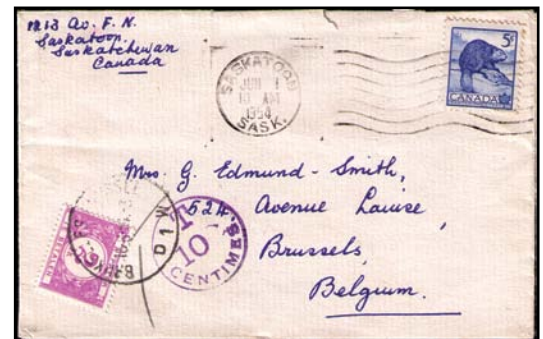 1213 Av. F. N.
Saskatoon.
Saskatchewan
Canada
SASKATOON
JUN 1
10 AM
1954
SASK.
5¢
CANADA
Mrs G. Edmund-Smith,
524 Avenue Louise,
Brussels,
Belgium.
T
10
CENTIMES
D1W